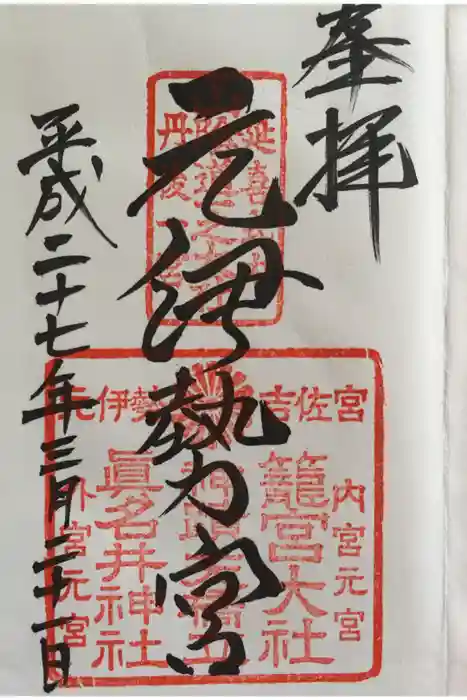 奉拝
元伊勢宮
平成二十七年三月二十一日
延喜
道之大社
丹後一
元伊勢 吉佐宮
内宮元宮
籠宮大社
眞名井神社
外宮元宮